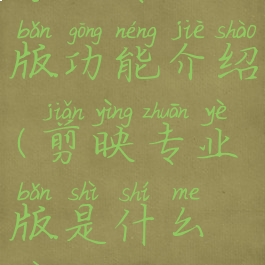 bǎn gōng néng jiè shào
版功能介绍
jiǎn yìng zhuān yè
(剪映专业
bǎn shì shí me
版是什么